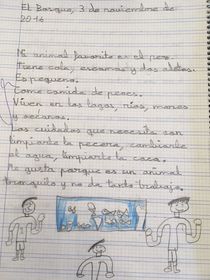 El Bosque, 3 de noviembre de
2016
Mi animal favorito es el pez.
Tiene cola, escamas y dos aletas.
Es pequeño.
Come comida de peces.
Viven en los lagos, ríos, mares
y oceanos.
Los cuidados que necesita son
limpiarle la pecera, cambiarle
el agua, limpiarle la caca.
Me gusta porque es un animal
tranquilo y no da tanto trabajo.